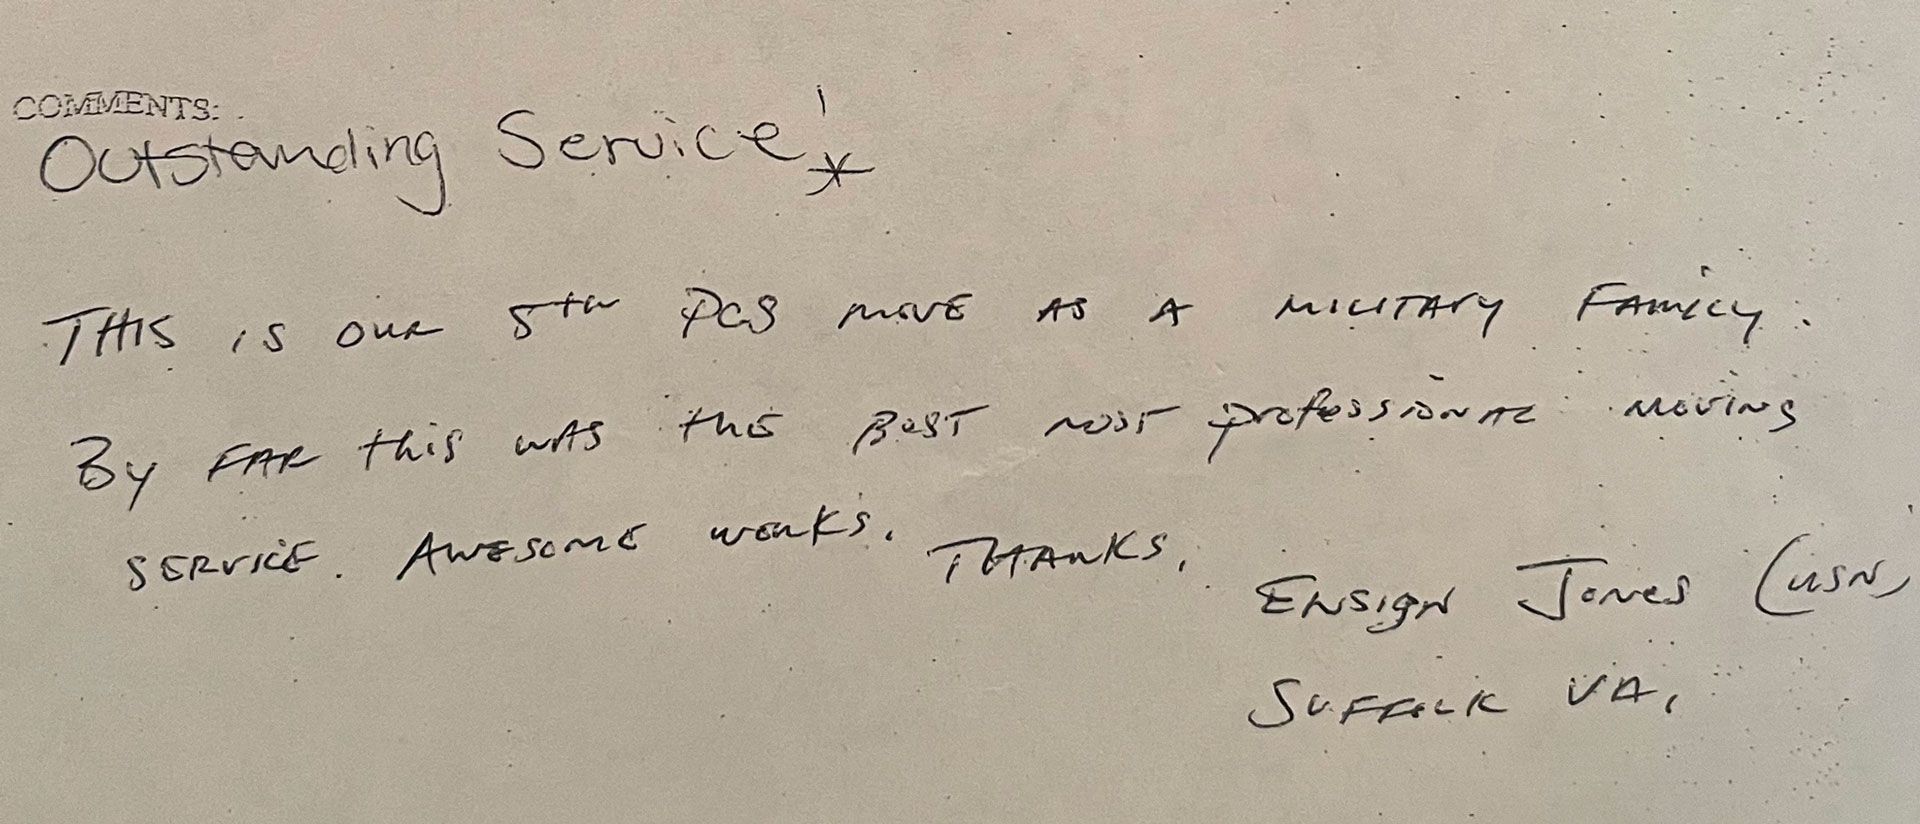 COMMENTS:
Outstanding Service!
THIS is OUR 5TH PCS MOVE AS A MILITARY FAMILY.
By FAR this WAS the BEST MOST professionAL MOVING
SERVICE. AWESOME WORKS. THANKS,
ENSIGN JONES (USN)
SUFFOLK VA,